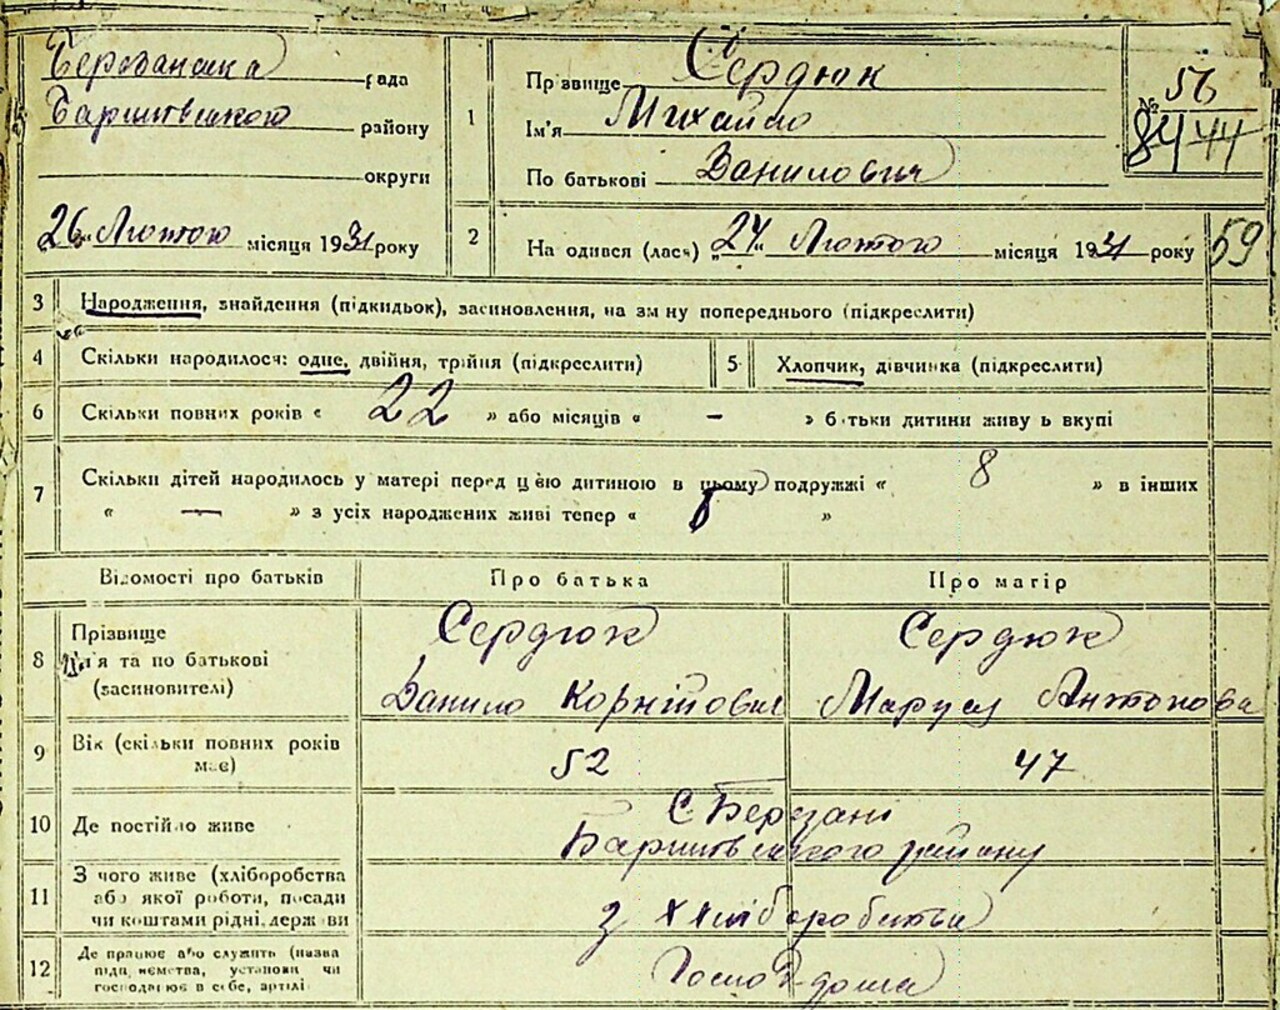 Березанська рада
Баришівського району
округи
„26“ Лютого місяця 1931 року
1
Прізвище Сердюк
Ім'я Михайло
По батькові Данилович
56
№ 84 44
2
На одився (лася) „24“ Лютого місяця 1931 року
59
3 Народження, знайдення (підкидьок), засиновлення, на зм ну попереднього (підкреслити)
4 Скільки народилося: одне, двійня, трійня (підкреслити)
5 Хлопчик, дівчинка (підкреслити)
6 Скільки повних років « 22 » або місяців « – » б тьки дитини живу ь вкупі
7 Скільки дітей народилось у матері перед цією дитиною в цьому подружжі « 8 » в інших
« — » з усіх народжених живі тепер « »
Відомості про батьків
Про батька
Про матір
8 Прізвище
ім'я та по батькові
(засиновителі)
Сердюк
Данило Корнійович
Сердюк
Маруся Антонова
9 Вік (скільки повних років
має)
52
47
10 Де постійно живе
с. Березані
Баришівського району
11 З чого живе (хліборобства
або якої роботи, посади
чи коштами рідні, держ ви
з хліборобства
12 Де працює або служить (назва
підп ємства, установи чи
господарює в себе, артілі
Господ дома